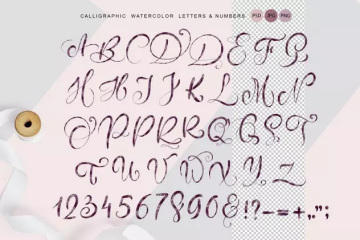 CALLIGRAPHIC WATERCOLOR LETTERS & NUMBERS PSD JPG PNG
A B C D D E F G
H H I J K L M N
O P P R R Q G S T
T U V W X Y Z
1234567890&!?-=+,.";